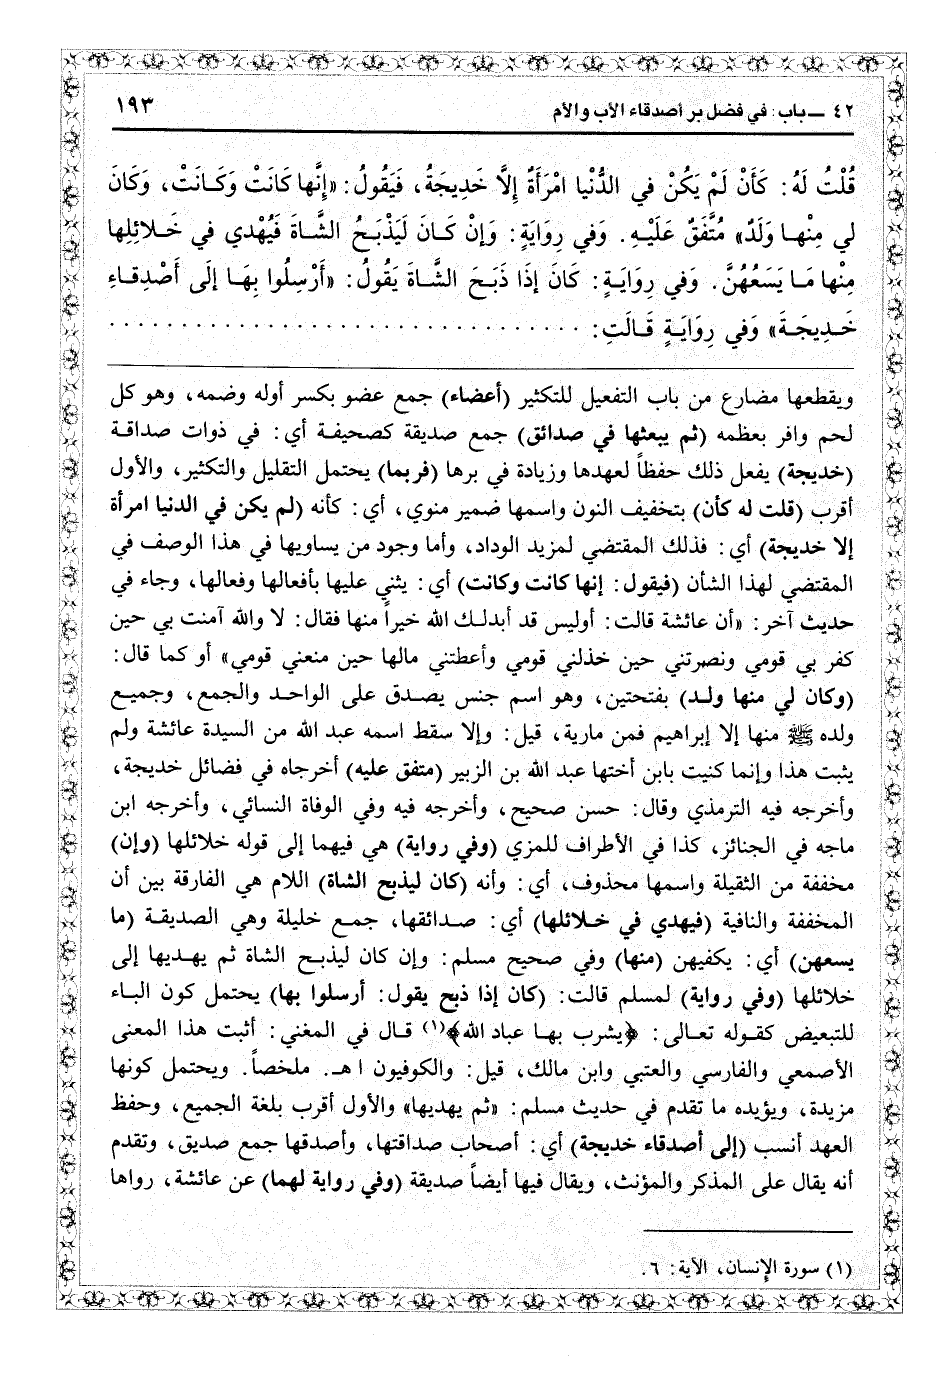 ٤٢ ــ باب: في فضل بر أصدقاء الأب والأم
١٩٣
قُلْتُ لَهُ: كَأَنْ لَمْ يَكُنْ في الدُّنْيا امْرَأَةٌ إلَّا خَدِيجَةُ، فَيَقُولُ: «إنَّها كَانَتْ وَكَانَتْ، وَكَانَ
لي مِنْهـا وَلَدٌ» مُتَّفَقٌ عَلَيْـهِ. وَفي رِوايَةٍ: وَإنْ كَـانَ لَيَذْبَـحُ الشَّـاةَ فَيُهْدي في خَـلائلِها
مِنْها مَـا يَسَعُهُنَّ. وَفي رِوَايَـةٍ: كَانَ إذَا ذَبَـحَ الشَّـاةَ يَقُولُ: «أَرْسِلُوا بِهَـا إلَى أَصْدِقَـاءِ
خَـدِيجَـةَ» وَفي رِوَايَـةٍ قَـالَتِ: . . . . . . . . . . . . . . . . . . . . . . . . . . . . . . . .
ويقطعها مضارع من باب التفعيل للتكثير (أعضاء) جمع عضو بكسر أوله وضمه، وهو كل
لحم وافر بعظمه (ثم يبعثها في صدائق) جمع صديقة كصحيفـة أي: في ذوات صداقـة
(خديجة) يفعل ذلك حفظاً لعهدها وزيادة في برها (فربما) يحتمل التقليل والتكثير، والأول
أقرب (قلت له كأن) بتخفيف النون واسمها ضمير منوي، أي: كأنه (لم يكن في الدنيا امرأة
إلا خديجة) أي: فذلك المقتضي لمزيد الوداد، وأما وجود من يساويها في هذا الوصف في
المقتضي لهذا الشأن (فيقول: إنها كانت وكانت) أي: يثني عليها بأفعالها وفعالها، وجاء في
حديث آخر: «أن عائشة قالت: أوليس قد أبدلـك الله خيراً منها فقال: لا والله آمنت بي حين
كفر بي قومي ونصرتني حين خذلني قومي وأعطتني مالها حين منعني قومي» أو كما قال:
(وكان لي منها ولـد) بفتحتين، وهو اسم جنس يصـدق على الواحـد والجمع، وجميـع
ولده ﷺ منها إلا إبراهيم فمن مارية، قيل: وإلا سقط اسمه عبد الله من السيدة عائشة ولم
يثبت هذا وإنما كنيت بابن أختها عبد الله بن الزبير (متفق عليه) أخرجاه في فضائل خديجة،
وأخرجه فيه الترمذي وقال: حسن صحيح، وأخرجه فيه وفي الوفاة النسائي، وأخرجه ابن
ماجه في الجنائز، كذا في الأطراف للمزي (وفي رواية) هي فيهما إلى قوله خلائلها (وإن)
مخففة من الثقيلة واسمها محذوف، أي: وأنه (كان ليذبح الشاة) اللام هي الفارقة بين أن
المخففة والنافية (فيهدي في خـلائلها) أي: صـدائقها، جمـع خليلة وهي الصديقـة (ما
يسعهن) أي: يكفيهن (منها) وفي صحيح مسلم: وإن كان ليذبـح الشاة ثم يهـديها إلى
خلائلها (وفي رواية) لمسلم قالت: (كان إذا ذبح يقول: أرسلوا بها) يحتمل كون البـاء
للتبعيض كقـوله تعـالى: ﴿يشرب بهـا عباد الله﴾(١) قـال في المغني: أثبت هذا المعنى
الأصمعي والفارسي والعتبي وابن مالك، قيل: والكوفيون ا هـ. ملخصاً. ويحتمل كونها
مزيدة، ويؤيده ما تقدم في حديث مسلم: «ثم يهديها» والأول أقرب بلغة الجميع، وحفظ
العهد أنسب (إلى أصدقاء خديجة) أي: أصحاب صداقتها، وأصدقها جمع صديق، وتقدم
أنه يقال على المذكر والمؤنث، ويقال فيها أيضاً صديقة (وفي رواية لهما) عن عائشة، رواها
(١) سورة الإنسان، الآية: ٦.